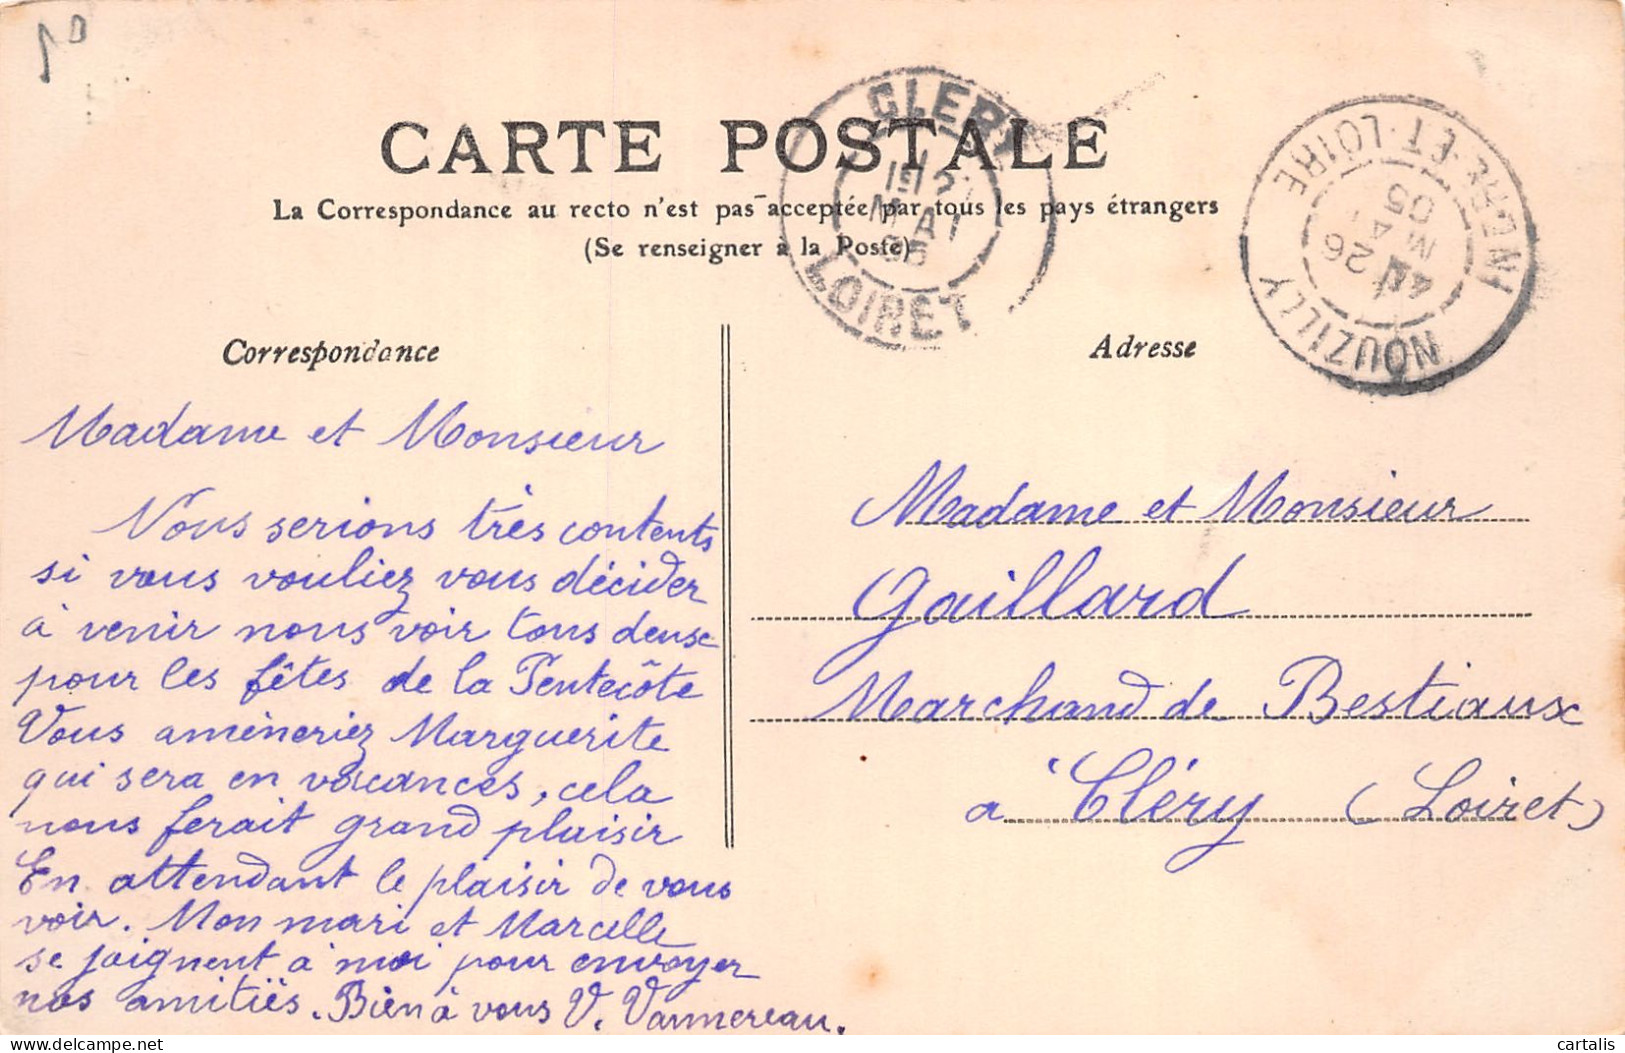 CARTE POSTALE
La Correspondance au recto n'est pas acceptée par tous les pays étrangers
(Se renseigner à la Poste)
CLERY
MAI
05
LOIRET
INDRE-ET-LOIRE
26
MAI
05
NOUZILLY
Correspondance
Madame et Monsieur
Nous serions très contents
si vous vouliez vous décider
à venir nous voir tous deux
pour les fêtes de la Pentecôte
Vous amèneriez Marguerite
qui sera en vacances, cela
nous ferait grand plaisir
En attendant le plaisir de vous
voir. Mon mari et Marcelle
se joignent à moi pour envoyer
nos amitiés. Bien à vous V. Vannereau.
Adresse
Madame et Monsieur
Gaillard
Marchand de Bestiaux
à Cléry (Loiret)
delcampe.net
cartalis